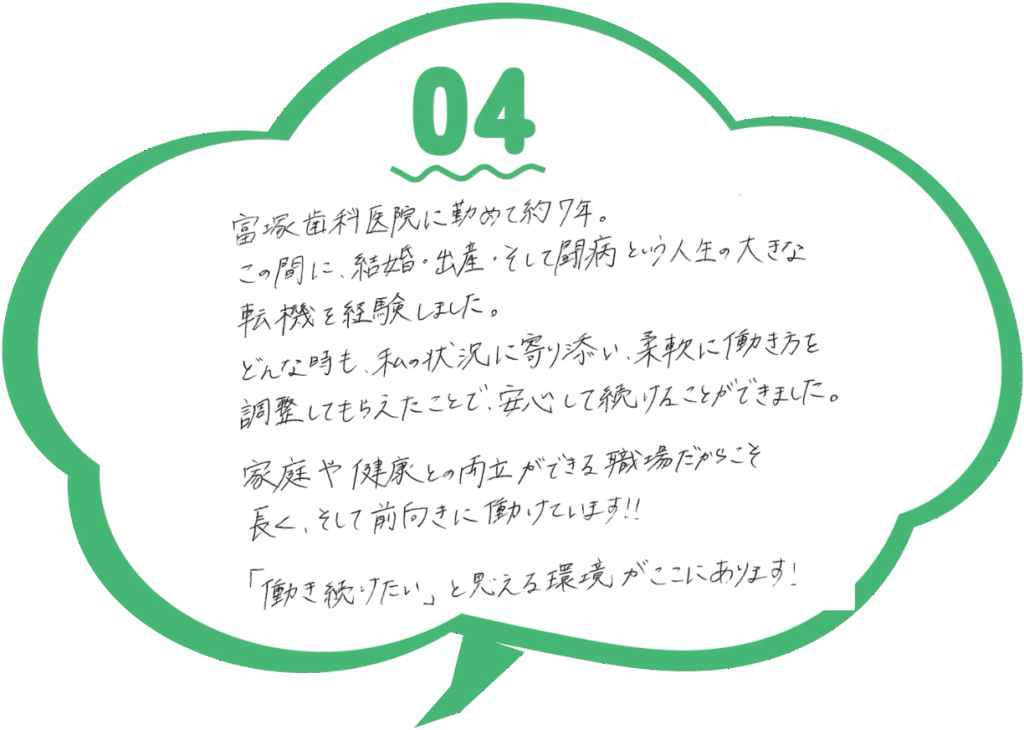 04
富塚歯科医院に勤めて約7年。
この間に、結婚・出産・そして闘病という人生の大きな
転機を経験しました。
どんな時も、私の状況に寄り添い、柔軟に働き方を
調整してもらえたことで、安心して続けることができました。
家庭や健康との両立ができる職場だからこそ
長く、そして前向きに働けています!!
「働き続けたい」と思える環境がここにあります!